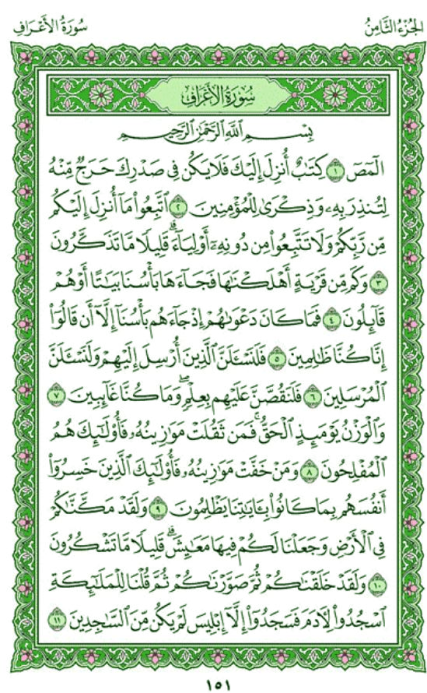 الجزء الثامن
سورة الأعراف
سُورَةُ الْأَعْرَافِ
بِسْمِ اللَّهِ الرَّحْمَٰنِ الرَّحِيمِ
الٓمٓصٓ ١ كِتَٰبٌ أُنزِلَ إِلَيْكَ فَلَا يَكُن فِى صَدْرِكَ حَرَجٌ مِّنْهُ
لِتُنذِرَ بِهِۦ وَذِكْرَىٰ لِلْمُؤْمِنِينَ ٢ ٱتَّبِعُوا۟ مَآ أُنزِلَ إِلَيْكُم
مِّن رَّبِّكُمْ وَلَا تَتَّبِعُوا۟ مِن دُونِهِۦٓ أَوْلِيَآءَۗ قَلِيلًا مَّا تَذَكَّرُونَ
٣ وَكَم مِّن قَرْيَةٍ أَهْلَكْنَٰهَا فَجَآءَهَا بَأْسُنَا بَيَٰتًا أَوْ هُمْ
قَآئِلُونَ ٤ فَمَا كَانَ دَعْوَىٰهُمْ إِذْ جَآءَهُم بَأْسُنَآ إِلَّآ أَن قَالُوٓا۟
إِنَّا كُنَّا ظَٰلِمِينَ ٥ فَلَنَسْـَٔلَنَّ ٱلَّذِينَ أُرْسِلَ إِلَيْهِمْ وَلَنَسْـَٔلَنَّ
ٱلْمُرْسَلِينَ ٦ فَلَنَقُصَّنَّ عَلَيْهِم بِعِلْمٍۖ وَمَا كُنَّا غَآئِبِينَ ٧
وَٱلْوَزْنُ يَوْمَئِذٍ ٱلْحَقُّۚ فَمَن ثَقُلَتْ مَوَٰزِينُهُۥ فَأُو۟لَٰٓئِكَ هُمُ
ٱلْمُفْلِحُونَ ٨ وَمَنْ خَفَّتْ مَوَٰزِينُهُۥ فَأُو۟لَٰٓئِكَ ٱلَّذِينَ خَسِرُوٓا۟
أَنفُسَهُم بِمَا كَانُوا۟ بِـَٔايَٰتِنَا يَظْلِمُونَ ٩ وَلَقَدْ مَكَّنَّٰكُمْ
فِى ٱلْأَرْضِ وَجَعَلْنَا لَكُمْ فِيهَا مَعَٰيِشَۗ قَلِيلًا مَّا تَشْكُرُونَ
١٠ وَلَقَدْ خَلَقْنَٰكُمْ ثُمَّ صَوَّرْنَٰكُمْ ثُمَّ قُلْنَا لِلْمَلَٰٓئِكَةِ
ٱسْجُدُوا۟ لِءَادَمَ فَسَجَدُوٓا۟ إِلَّآ إِبْلِيسَ لَمْ يَكُن مِّنَ ٱلسَّٰجِدِينَ ١١
١٥١